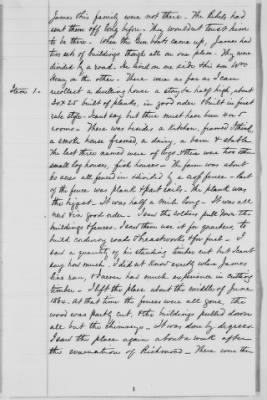 James this family were not there. The Rebels had
sent them off long before. They wouldn't trust him
to be there. When the Gun boats came up, James had
two sets of buildings though all on one place. They were
divided by a road. He lived on one side & his son Wm
Henry on the other. There were as far as I can
Item 1- recollect a dwelling house a story & a half high, about
20 x 25 built of planks, in good order & built in first
rate style. I can't say but there must have been 4 or 5
rooms. There was besides a kitchen, framed I think,
a smoke house framed, a dairy, a barn & stable
the last three named were of logs. & there was two other
small log houses, fish houses. The farm was about
60 acres all fenced in & divided by a cross fence. Part
of the fence was plank & part rails. The plank was
the biggest. It was half a mile long. It was all
in good order. I saw the soldiers pull down the
buildings & fences. I saw them use it for quarters, to
build corduroy roads & breastworks & for fuel. I
saw a quantity of his standing timber cut but I can't
say how much. I did not know exactly when James
line ran, & I never had much experience in cutting
timber. I left the place about the middle of June
1864. At that time the fences were all gone, the
wood was partly cut, & the buildings pulled down
all but the chimneys. It was done by degrees.
I saw the place again about a week after
the evacuation of Richmond. There were then